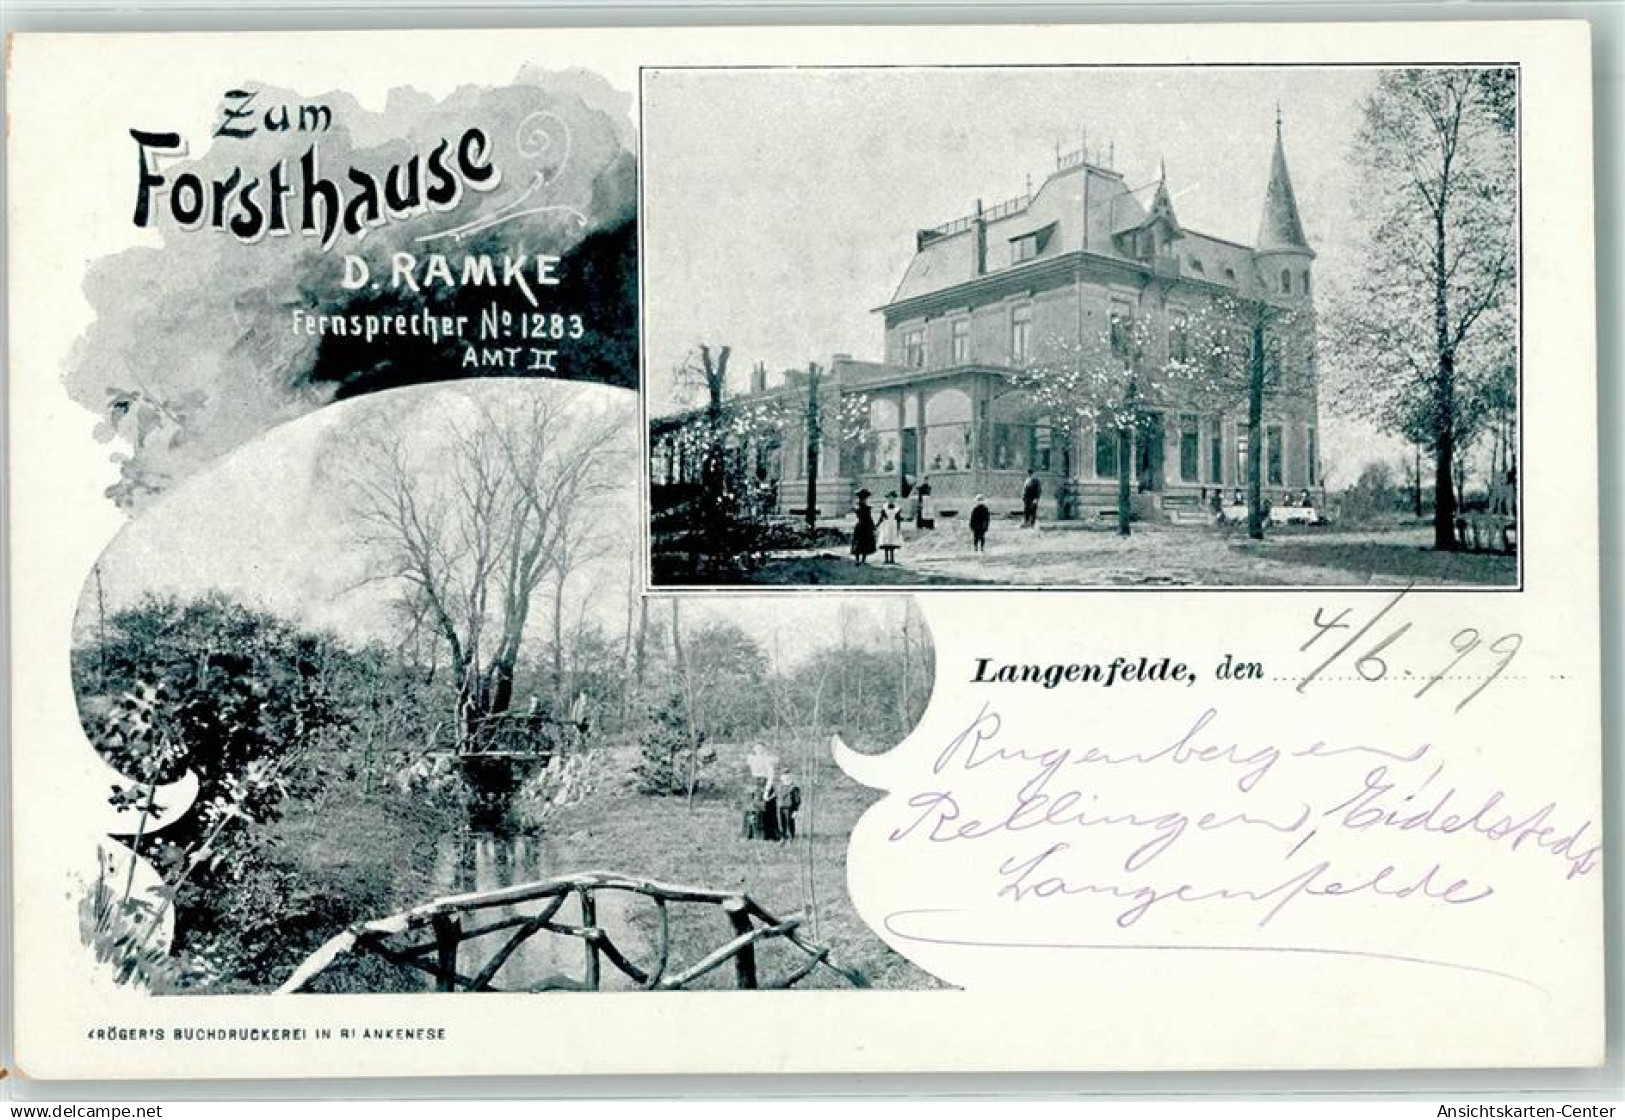 Zum
Forsthause
D. RAMKE
Fernsprecher No 1283
AMT II
Langenfelde, den 4/6. 99
Rugenbergen,
Rellingen, Eidelstedt,
Langenfelde
KRÖGER'S BUCHDRUCKEREI IN BLANKENESE
www.delcampe.net
Ansichtskarten-Center